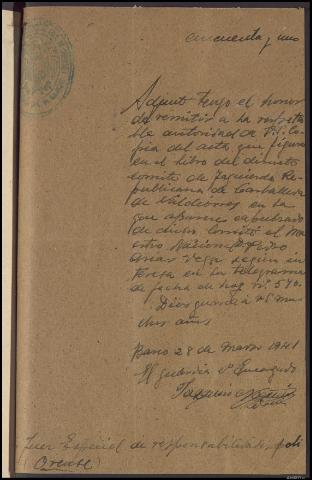 cincuenta y uno
Adjunto tengo el honor
de remitir a la respeta
ble autoridad de V.S. Co
pia del acta que figura
en el libro del disuelto
comité de Izquierda Re-
publicana de Carballeda
de Valdeorras en la
que aparece
de dicho Comité el Ma
estro Nacional Pedro
Arias Vega según in
teresa en su telegrama
de fecha de hoy nº 540.
Dios guarde a VS mu
chos años
Barco 28 de Marzo 1941
El guardia 2º Encargado
Juez Especial de responsabilidades poli
(Orense)